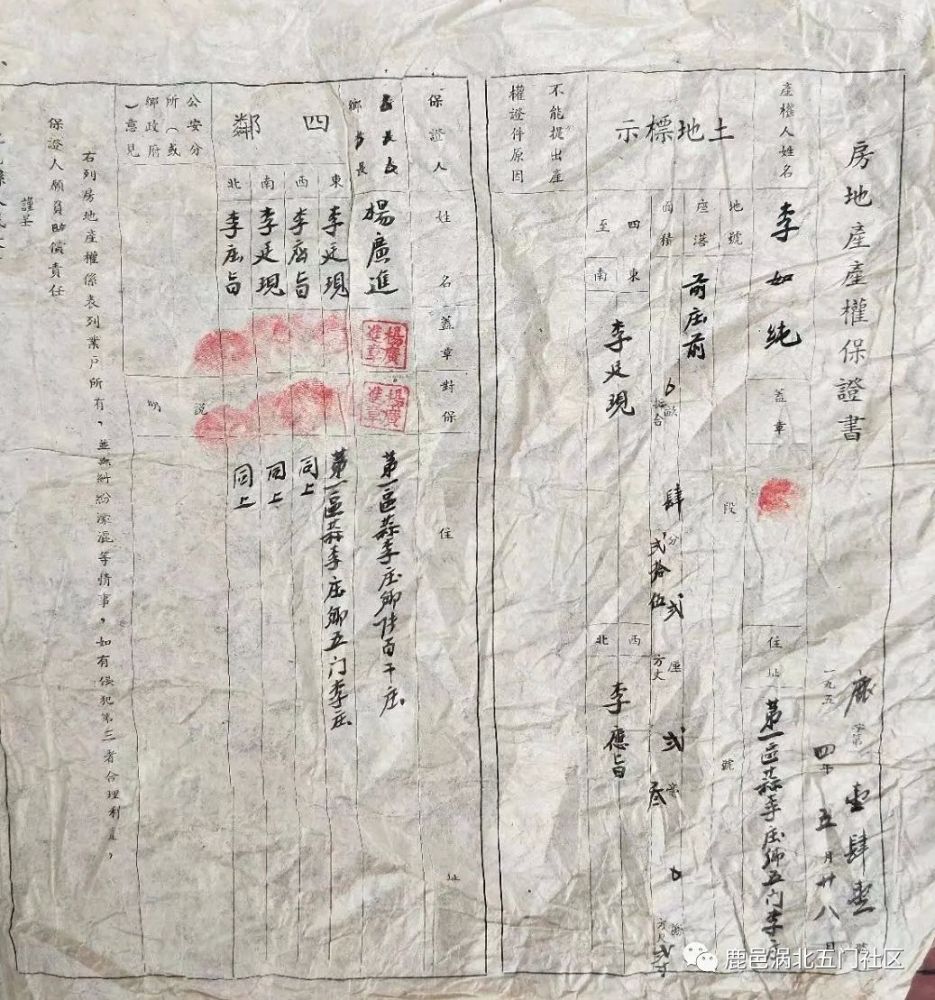 房地產產權保證書
鹿字第壹肆壹號
一九五四年五月廿八日
產權人姓名 李如純 蓋章 住址 第一區蒜李庄鄉五门李庄
土地標示
地號 段 號
座落 前庄前
面積 0畝肆分弍厘弍毫0絲
折合 弍拾伍方丈叁
四至
東 南 李廷現
西 北 李應旨
不能提出產權證件原因
保證人 姓名 蓋章 對保 住址
鄉長 楊廣進 第一區蒜李庄鄉陸百干庄
楊廣進章
楊廣進章
四鄰
東 李廷現 第一區蒜李庄鄉五门李庄
西 李應旨 同上
南 李廷現 同上
北 李應旨 同上
公安分所(或鄉政府)意見
說明
右列房地產權係表列業戶所有,並無糾紛朦混等情事,如有侵犯第三者合理利益,
保證人願負賠償責任
謹呈
鹿邑涡北五门社区